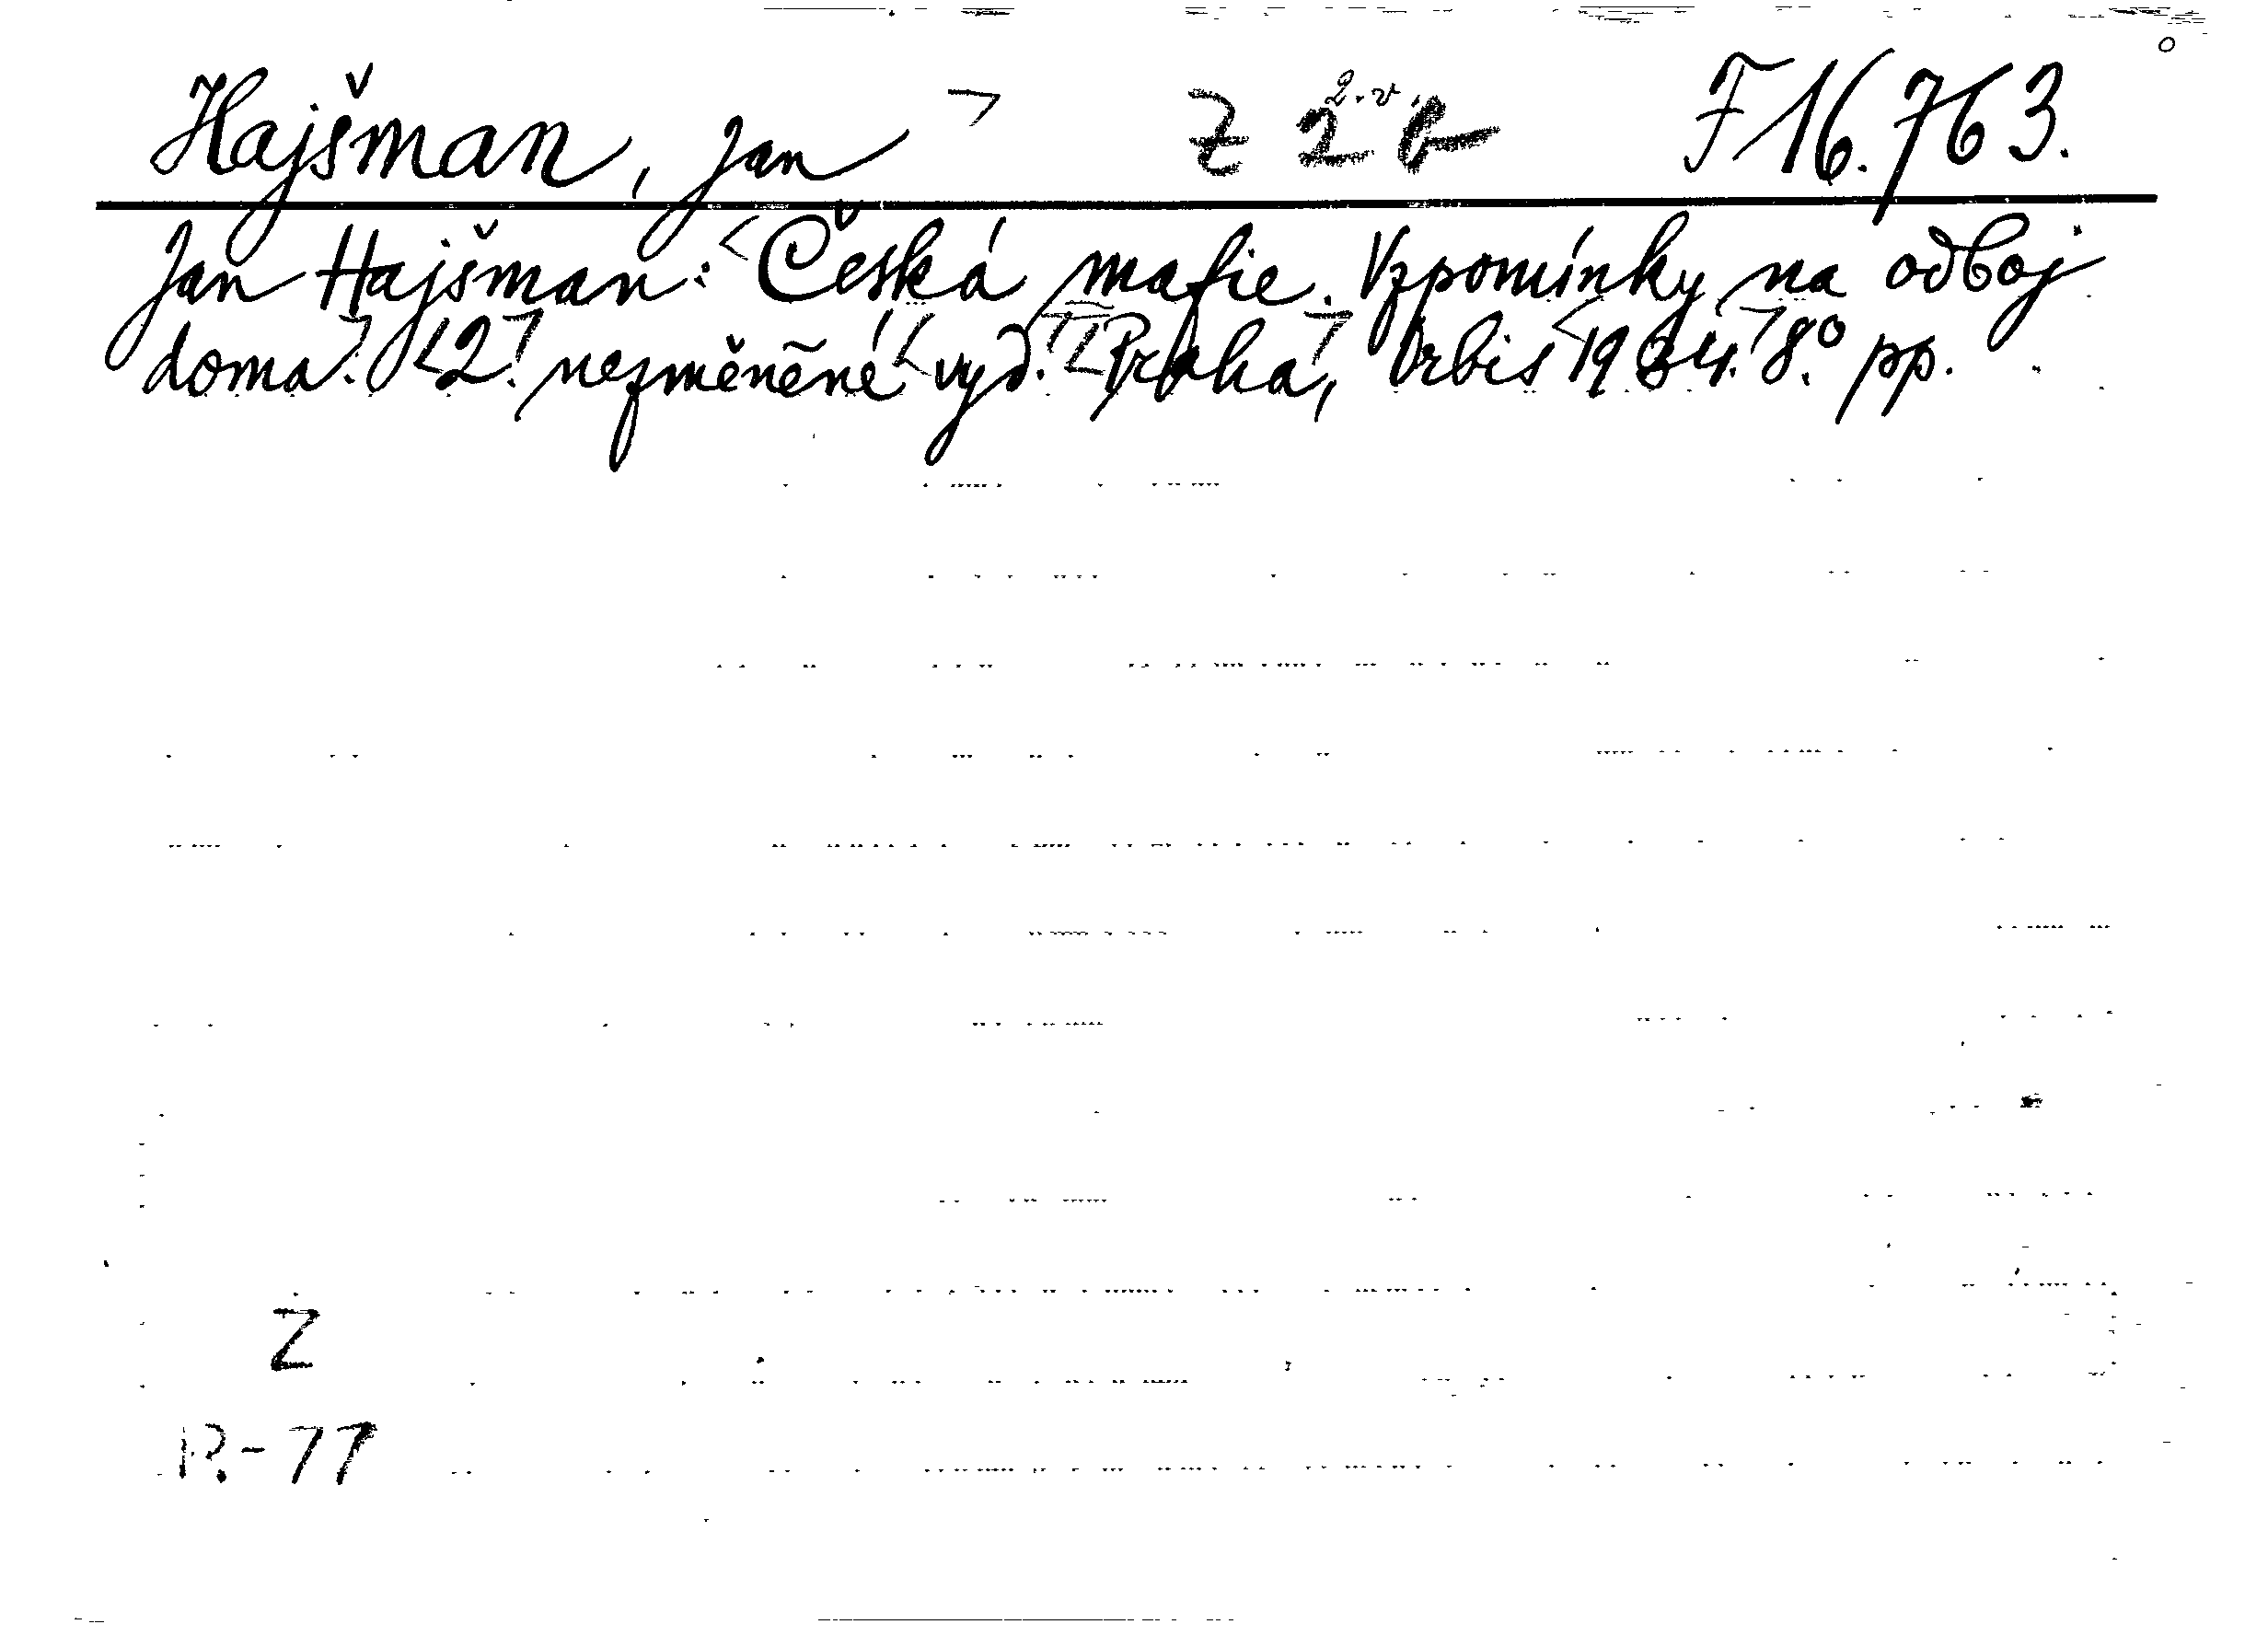 Hajšman, Jan Z 2 b F 16.763.
2.v.
Jan Hajšman: Česká mafie. Vzpomínky na odboj
doma. 2. nezměněné vyd. Praha, Orbis 1934. 8° pp.
Z
R-77